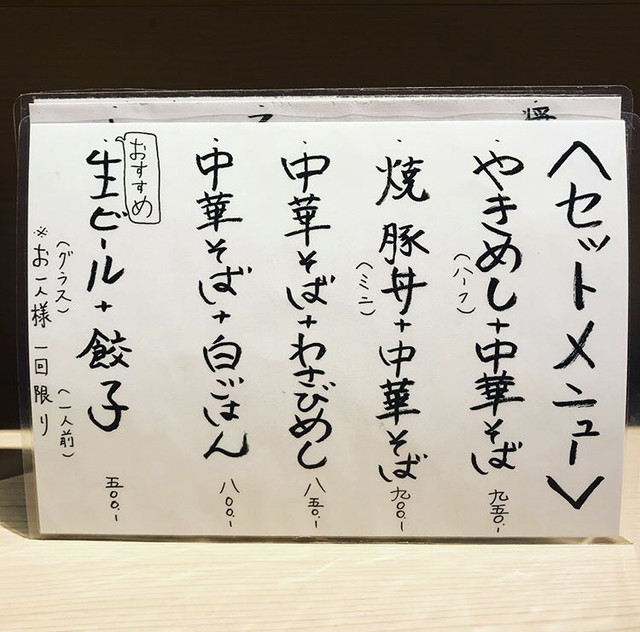 〈セットメニュー〉
・やきめし+中華そば 九五〇.-
（ハーフ）
・焼豚丼+中華そば 九〇〇.-
（ミニ）
・中華そば+わさびめし 八五〇.-
・中華そば+白ごはん 八〇〇.-
おすすめ
・生ビール+餃子 五〇〇.-
（グラス） （一人前）
※お一人様一回限り